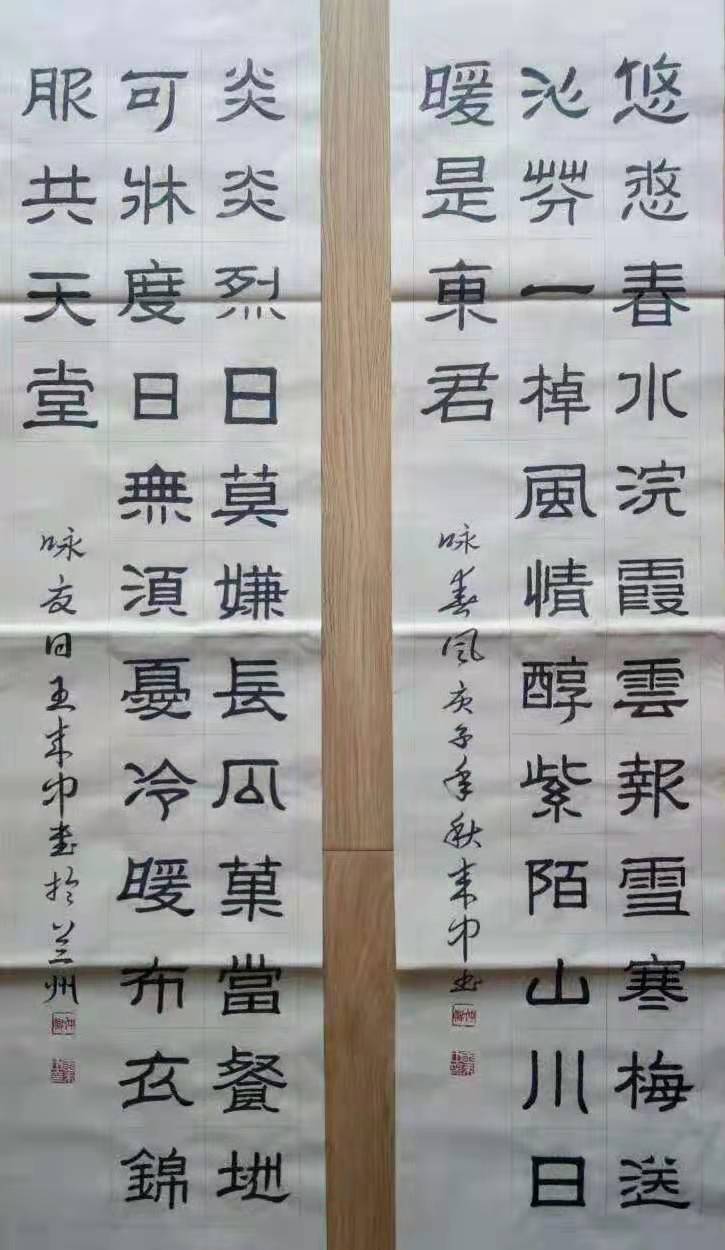 悠悠春水浣霞雲報雪寒梅送
沁芬一棹風情醇紫陌山川日
暖是東君
咏春风庚子年秋来中书
炎炎烈日莫嫌長瓜菓當餐地
可牀度日無須憂冷暖布衣錦
服共天堂
咏夏日王来中書於兰州